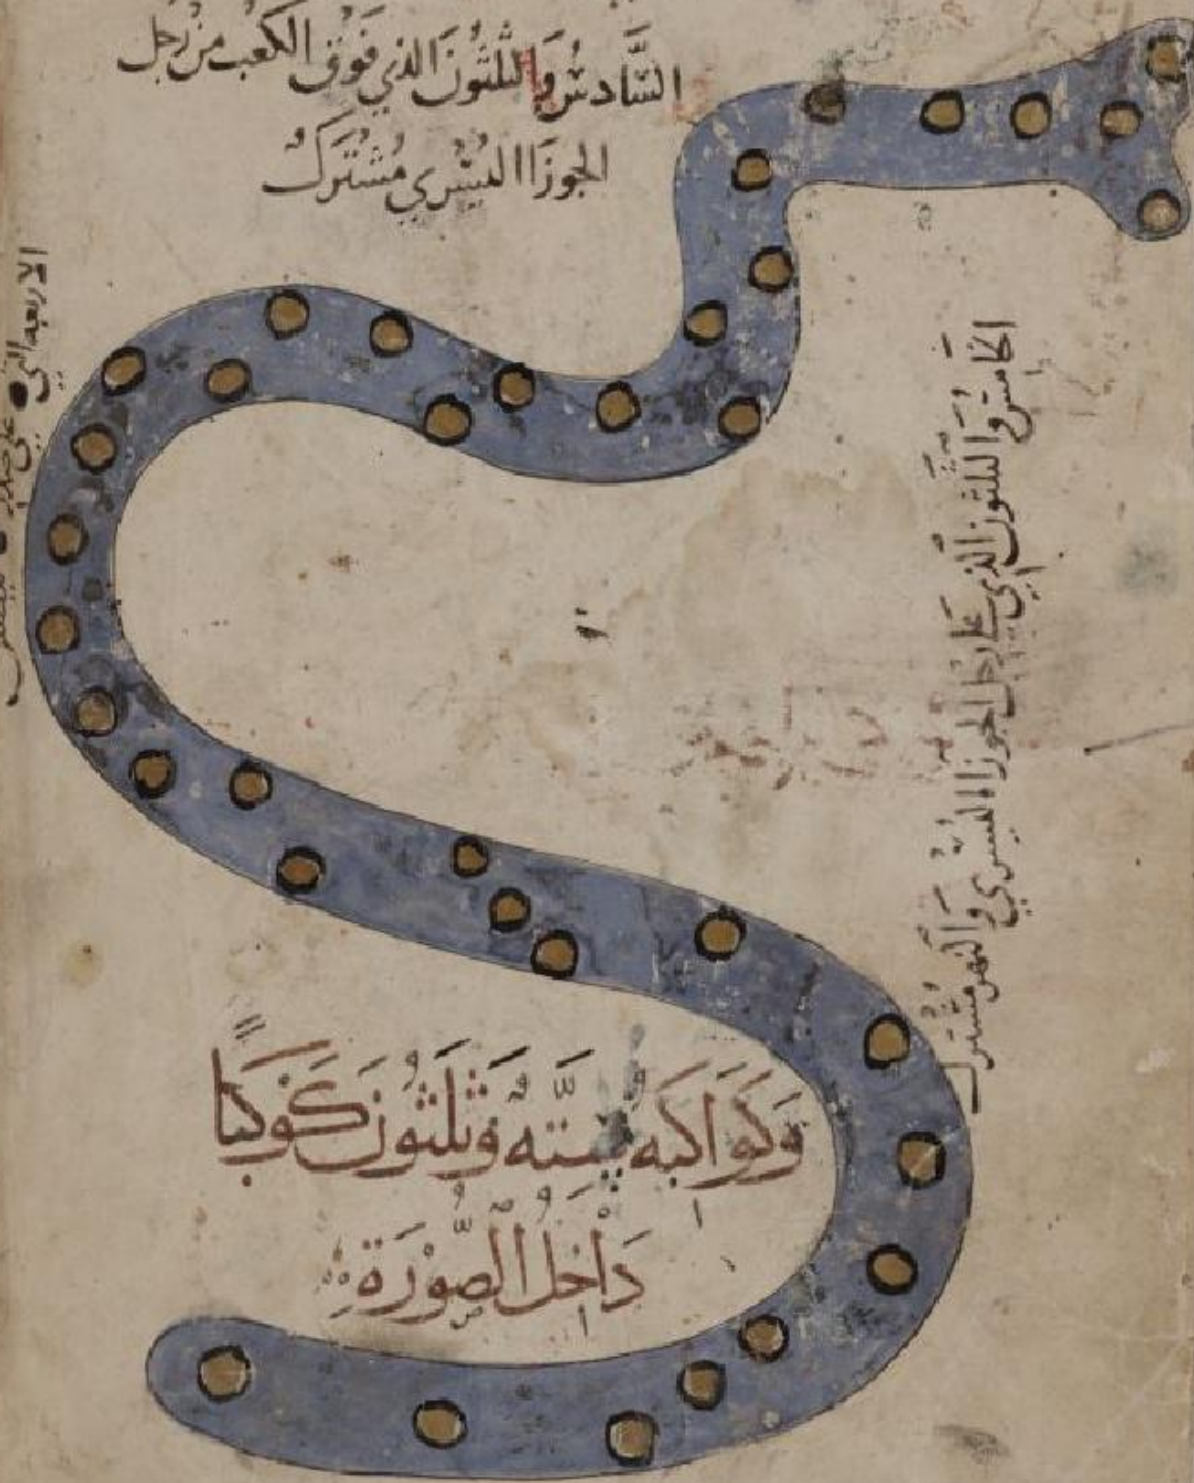 السَّادسُ والثلثُونَ الذي فَوْق الكعب من رجل
الجوزَا اليُسْرَي مُشتَرَكٌ
الخَامسُ وَالثلثُونَ الذي عَلَي رجل الجوزا اليُسْرَي وَالنَّهر مُشترك
الاربعه التي علي
وَكوَاكبه ستَّه وَثلثُونَ كَوْكبًا
دَاخلُ الصُّورَة